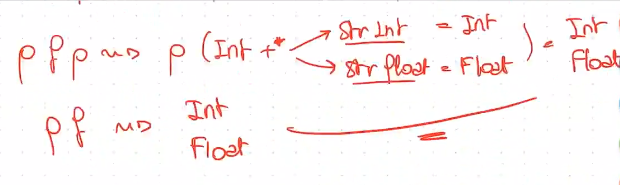 ρfρ ~> ρ (Int +* → Str Int = Int
→ Str float = Float ) = Int
Float
ρf ~> Int
Float